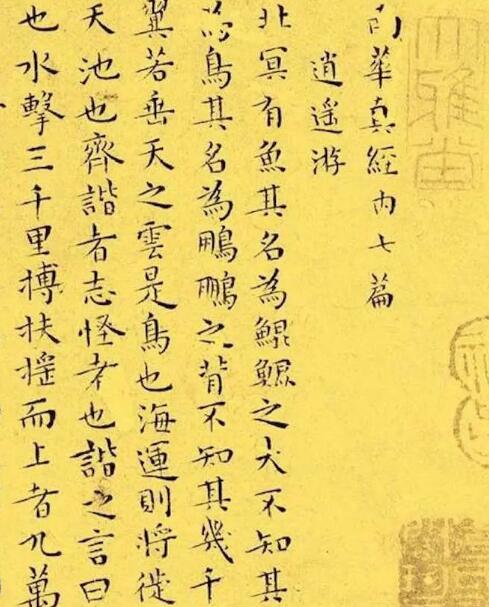 南華真經內七篇
逍遥游
北冥有魚其名為鯤鯤之大不知其
為鳥其名為鵬鵬之背不知其幾千
翼若垂天之雲是鳥也海運則將徙
天池也齊諧者志怪者也諧之言曰
也水擊三千里搏扶摇而上者九萬
大雅堂